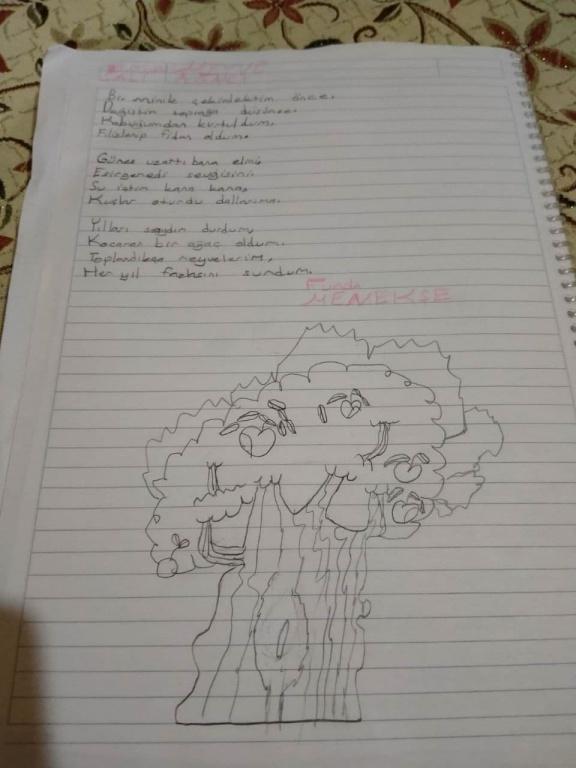 Bir minik çekirdektim önce.
Değiştim toprağa düşünce.
Kabuğumdan kurtuldum.
Filizlenip fidan oldum.
Güneş uzattı bana elini
Esirgemedi sevgisini.
Su içtim kana kana,
Kuşlar oturdu dallarıma.
Yılları saydım durdum,
Kocaman bir ağaç oldum.
Toplandıkça meyvelerim,
Her yıl fazlasını sundum.
Funda
MENEKŞE